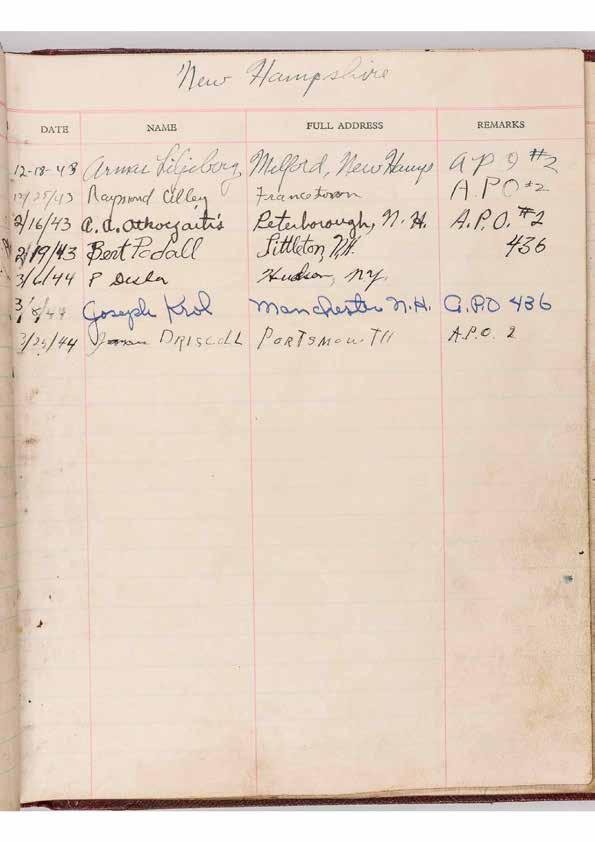 New Hampshire
DATE NAME FULL ADDRESS REMARKS
12-18-43 Liljeberg Milford, New Hamps A P O #2
12/25/43 Raymond Cilley Francestown A.P.O #2
2/16/43 A. A. Peterborough, N. H. A.P.O. #2
2/19/43 Bert Littleton N.H. 436
3/6/44 P Hudson, N.Y.
3/8/44 Joseph Krol Manchester N.H. A.P.O 436
3/25/44 DRISCOLL PORTSMOUTH A.P.O. 2